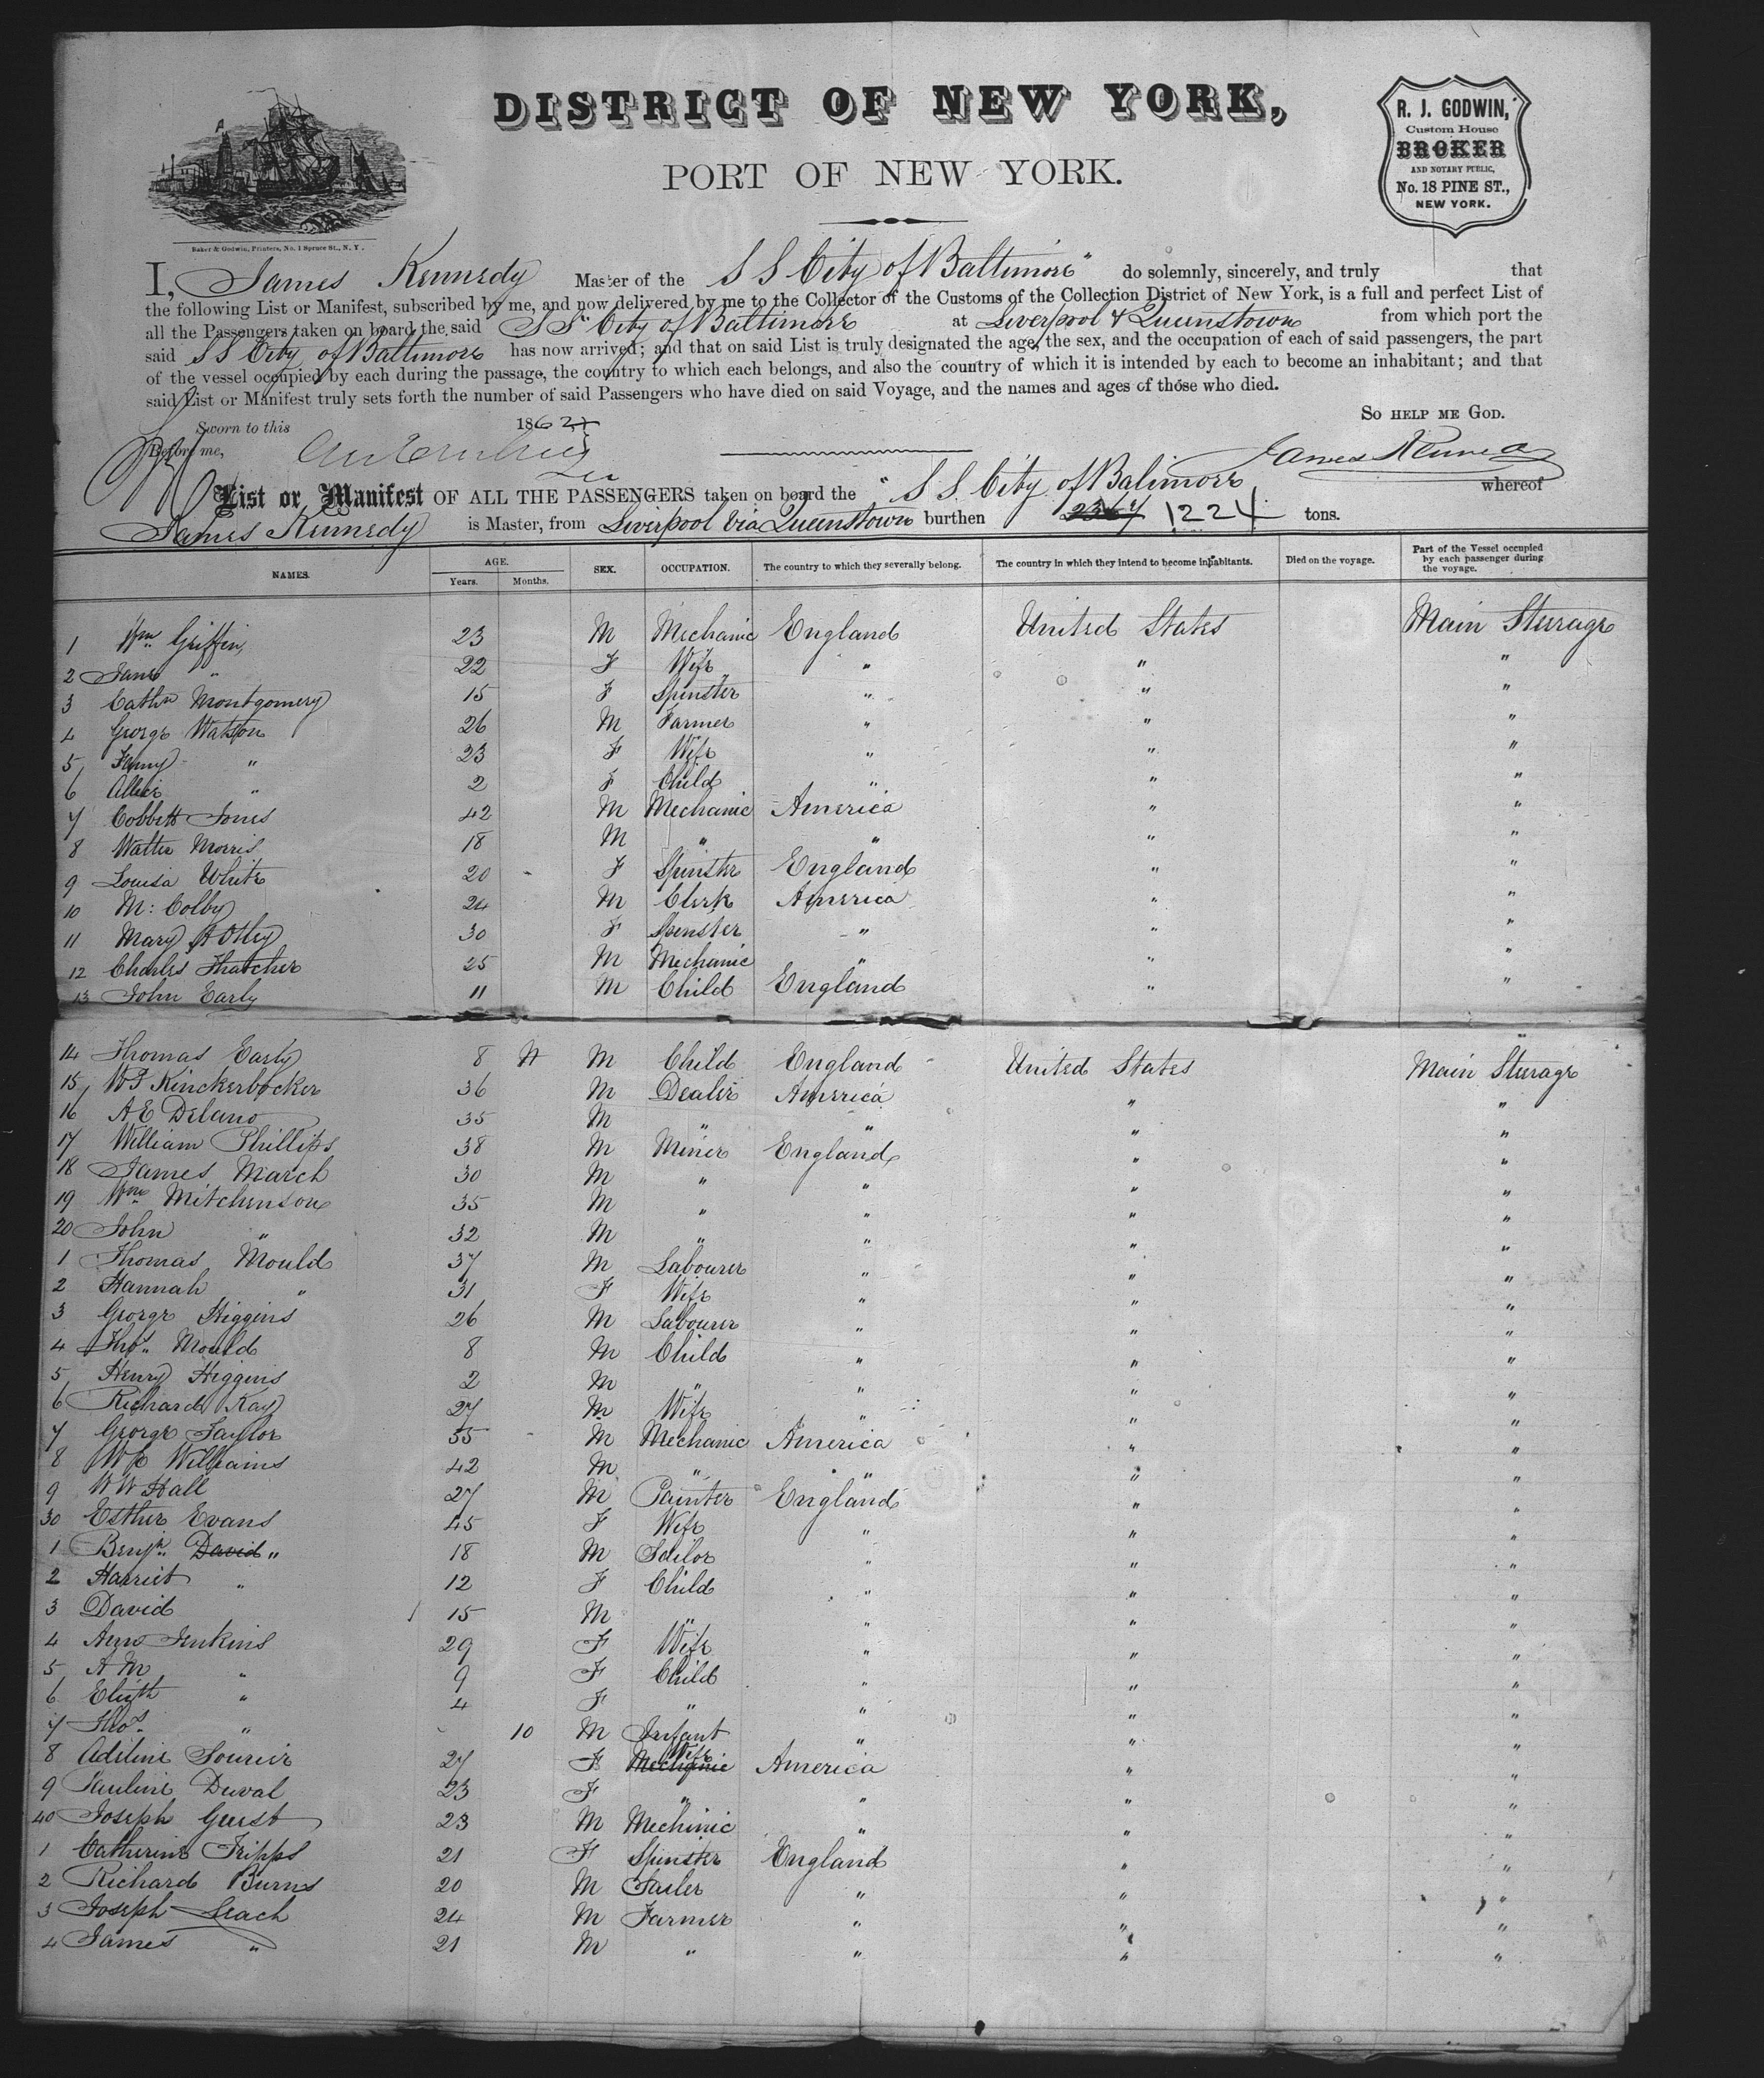 DISTRICT OF NEW YORK,
PORT OF NEW YORK.
R. J. GODWIN,
Custom House
BROKER
AND NOTARY PUBLIC,
No. 18 PINE ST.,
NEW YORK.
Baker & Godwin, Printers, No. 1 Spruce St., N. Y.
I, James Kennedy Master of the S S City of Baltimore" do solemnly, sincerely, and truly that
the following List or Manifest, subscribed by me, and now delivered by me to the Collector of the Customs of the Collection District of New York, is a full and perfect List of
all the Passengers taken on board the said S S" City of Baltimore at Liverpool & Queenstown from which port the
said S S City of Baltimore has now arrived; and that on said List is truly designated the age, the sex, and the occupation of each of said passengers, the part
of the vessel occupied by each during the passage, the country to which each belongs, and also the country of which it is intended by each to become an inhabitant; and that
said List or Manifest truly sets forth the number of said Passengers who have died on said Voyage, and the names and ages of those who died.
SO HELP ME GOD.
Sworn to this 1862
Before me,
James Kennedy
List or Manifest OF ALL THE PASSENGERS taken on board the "S S. City of Balimore whereof
James Kennedy is Master, from Liverpool via Queenstown burthen 2367 1224 tons.
NAMES. AGE. Years. Months. SEX. OCCUPATION. The country to which they severally belong. The country in which they intend to become inhabitants. Died on the voyage. Part of the Vessel occupied by each passenger during the voyage.
1 Wm Griffin, 23 M Mechanic England United States Main Steerage
2 Jane " 22 F Wife " " "
3 Cathn Montgomery 15 F Spinster " " "
4 George Watson 26 M Farmer " " "
5 Fanny " 23 F Wife " " "
6 Allice " 2 F Child " " "
7 Cobbett Jones 42 M Mechanic America " "
8 Walter Morris 18 M " " " "
9 Louisa White 20 F Spinster England " "
10 M: Colby 24 M Clerk America " "
11 Mary A Otley 30 F Spenster " " "
12 Charles Thatcher 25 M Mechanic " " "
13 John Early 11 M Child England " "
14 Thomas Early 8 M Child England United States Main Steerage
15 W J Kinckerbocker 36 M Dealer America " "
16 A E Delano 35 M " " " "
17 William Phillips 38 M Miner England " "
18 James March 30 M " " " "
19 Wm Mitchenson 35 M " " " "
20 John " 32 M " " " "
1 Thomas Mould 37 M Labourer " " "
2 Hannah " 31 F Wife " " "
3 George Higgins 26 M Labourer " " "
4 Thos. Mould 8 M Child " " "
5 Henry Higgins 2 M " " " "
6 Richard Kay 27 M Wife " " "
7 George Taylor 35 M Mechanic America " "
8 Williams 42 M " " " "
9 W W Hall 27 M Painter England " "
30 Esther Evans 45 F Wife " " "
1 Benjn. David " 18 M Sailor " " "
2 Harriet " 12 F Child " " "
3 David 15 M " " " "
4 Jenkins 29 F Wife " " "
5 A M " 9 F Child " " "
6 Elizth " 4 F " " " "
7 Thos. " 10 M Infant " " "
8 Adeline 27 F Mechanic Wife America " "
9 Pauline Duval 23 F " " " "
40 Joseph Guest 23 M Mechinic " " "
1 Catherine Tripps 21 F Spinster England " "
2 Richard Burns 20 M Sailer " " "
3 Joseph Leach 24 M Farmer " " "
4 James " 21 M " " " "